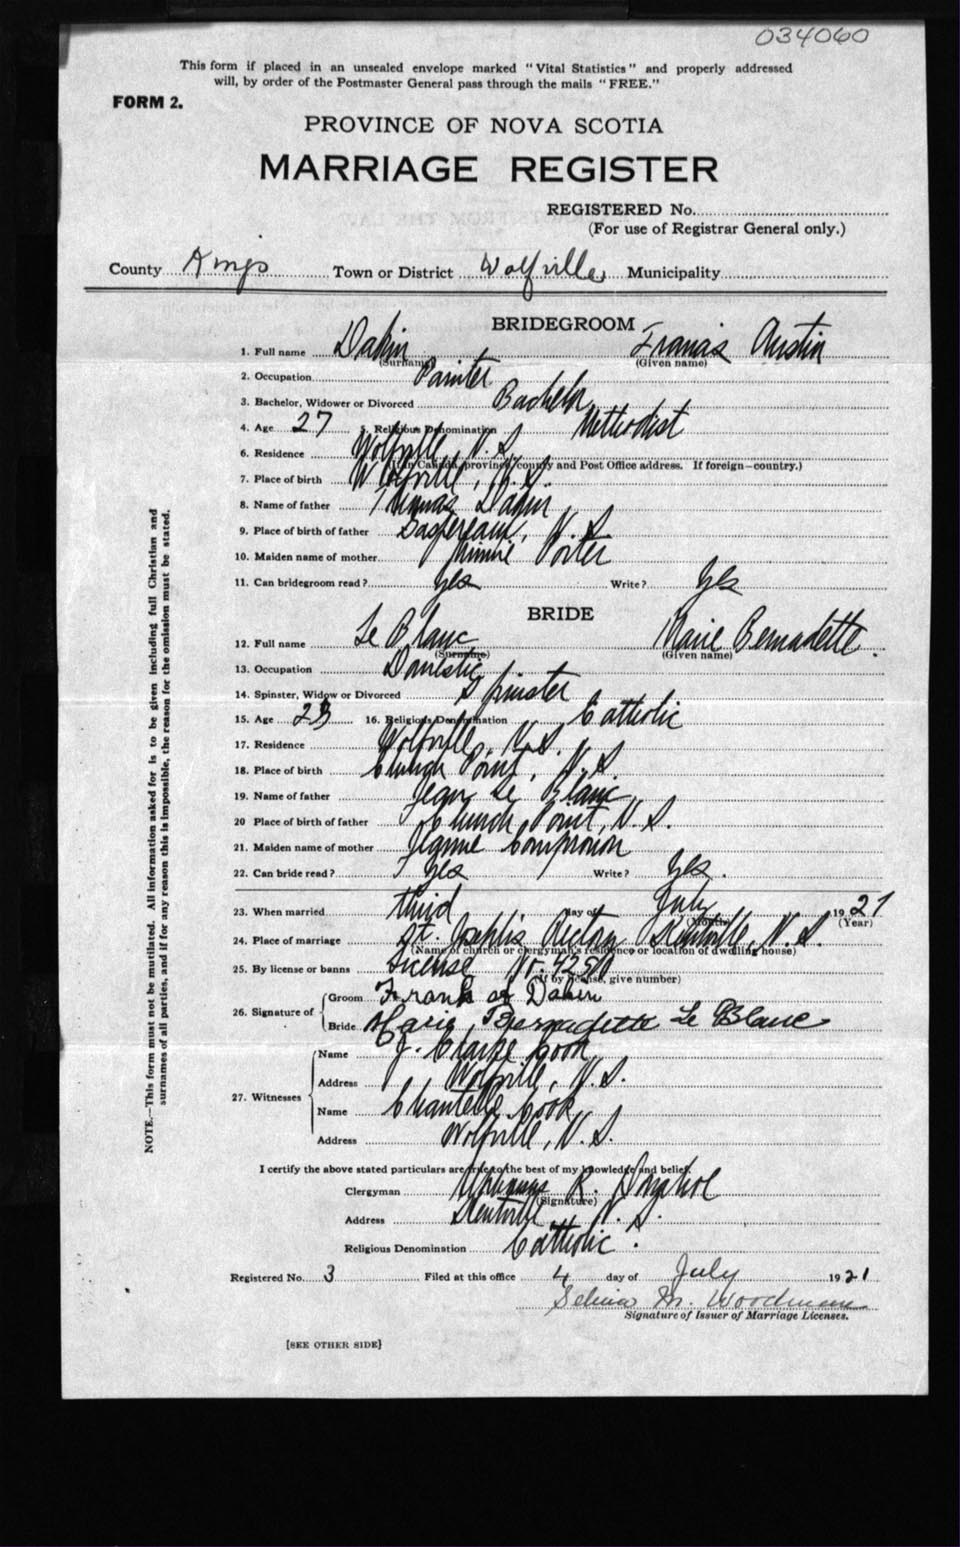 034060
This form if placed in an unsealed envelope marked "Vital Statistics" and properly addressed
will, by order of the Postmaster General pass through the mails "FREE."
FORM 2.
PROVINCE OF NOVA SCOTIA
MARRIAGE REGISTER
REGISTERED No.
(For use of Registrar General only.)
County Kings Town or District Wolfville, Municipality
BRIDEGROOM
1. Full name Dakin Francis Austin
(Surname) (Given name)
2. Occupation Painter
3. Bachelor, Widower or Divorced Bachelor
4. Age 27 5. Religious Denomination Methodist
6. Residence Wolfville, N.S.
(If in Canada, province, county and Post Office address. If foreign—country.)
7. Place of birth Wolfville, N.S.
8. Name of father Thomas Dakin
9. Place of birth of father Gaspereaux, N.S
10. Maiden name of mother Minnie Porter
11. Can bridegroom read? Yes Write? Yes
BRIDE
12. Full name Le Blanc Marie Bernadette.
(Surname) (Given name)
13. Occupation Domestic
14. Spinster, Widow or Divorced Spinster
15. Age 23 16. Religious Denomination Catholic
17. Residence Wolfville, N.S.
18. Place of birth Church Point, N.S.
19. Name of father Jean Le Blanc
20 Place of birth of father Church Point, N.S.
21. Maiden name of mother Jeanne
22. Can bride read? Yes Write? Yes.
23. When married third day of July 1921
(Month) (Year)
24. Place of marriage St. Joseph's Rectory Kentville, N.S.
(Name of church or clergyman's residence or location of dwelling house)
25. By license or banns License No.
(If by license, give number)
26. Signature of Groom Frank A Dakin
Bride Marie Bernadette Le Blanc
27. Witnesses Name J. Clarke Cook
Address Wolfville, N.S.
Name Cook
Address Wolfville, N.S.
I certify the above stated particulars are true to the best of my knowledge and belief.
Clergyman R.
(Signature)
Address Kentville N.S.
Religious Denomination Catholic.
Registered No. 3 Filed at this office 4 day of July 1921
M. Woodman
Signature of Issuer of Marriage Licenses.
[SEE OTHER SIDE]
NOTE.—This form must not be mutilated. All information asked for is to be given including full Christian and
surnames of all parties, and if for any reason this is impossible, the reason for the omission must be stated.